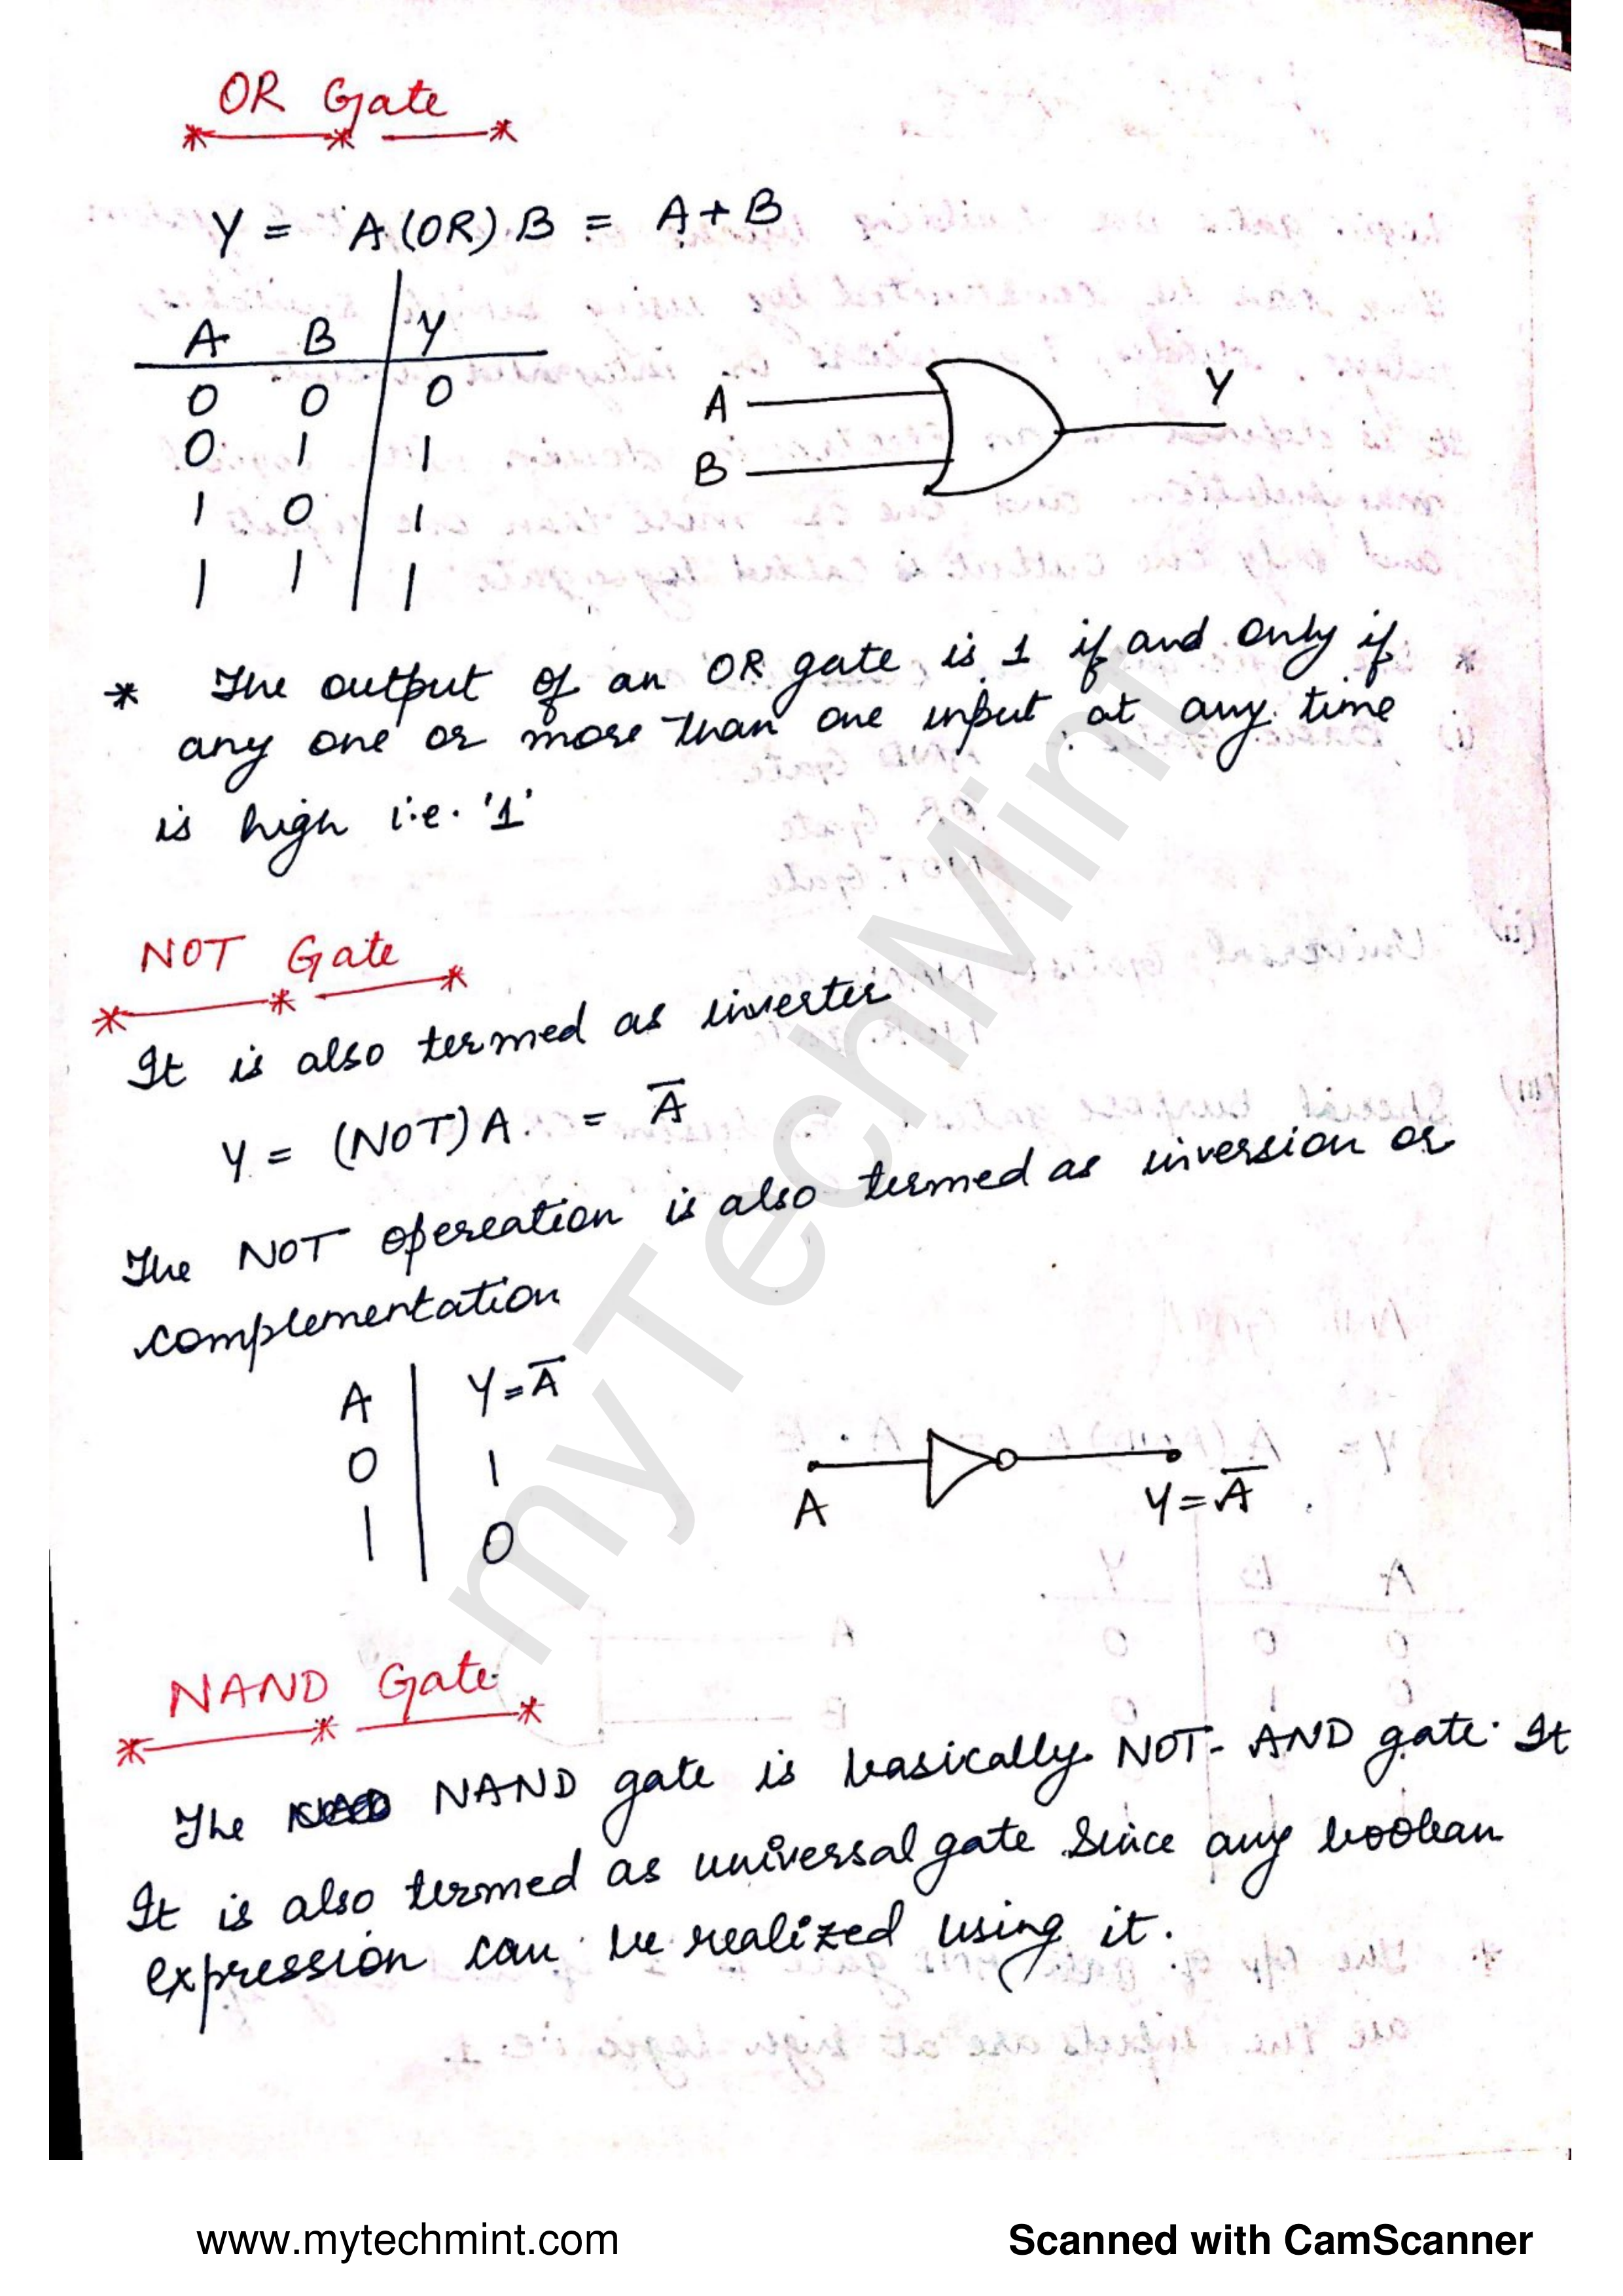 OR Gate
Y = A (OR) B = A + B
A B Y
0 0 0
0 1 1
1 0 1
1 1 1
A
B
Y
* The output of an OR gate is 1 if and only if
any one or more than one input at any time
is high i.e. '1'
NOT Gate
It is also termed as inverter
Y = (NOT) A = A̅
The NOT opereation is also termed as inversion or
complementation
A Y = A̅
0 1
1 0
A
Y = A̅
NAND Gate
The NAND gate is basically NOT-AND gate. It
It is also termed as universal gate since any boolean
expression can be realized using it.
myTechMint
www.mytechmint.com
Scanned with CamScanner